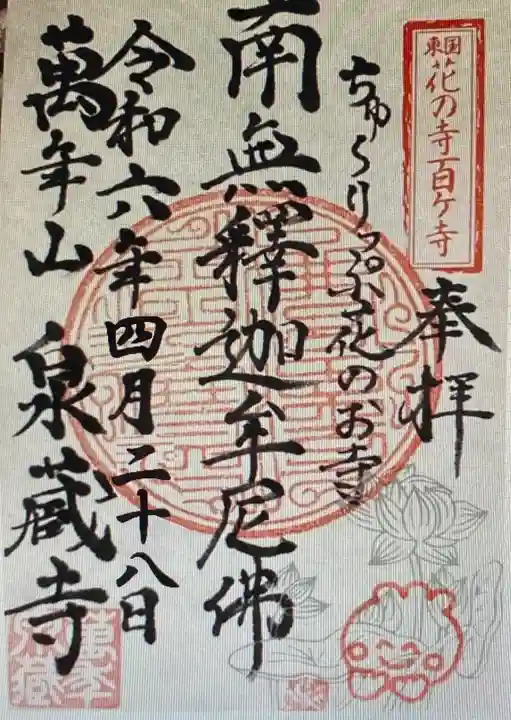 東国
花の寺百ヶ寺
奉拝
ちゅうりっぷ花のお寺
南無釋迦牟尼佛
令和六年四月二十八日
萬年山 泉蔵寺